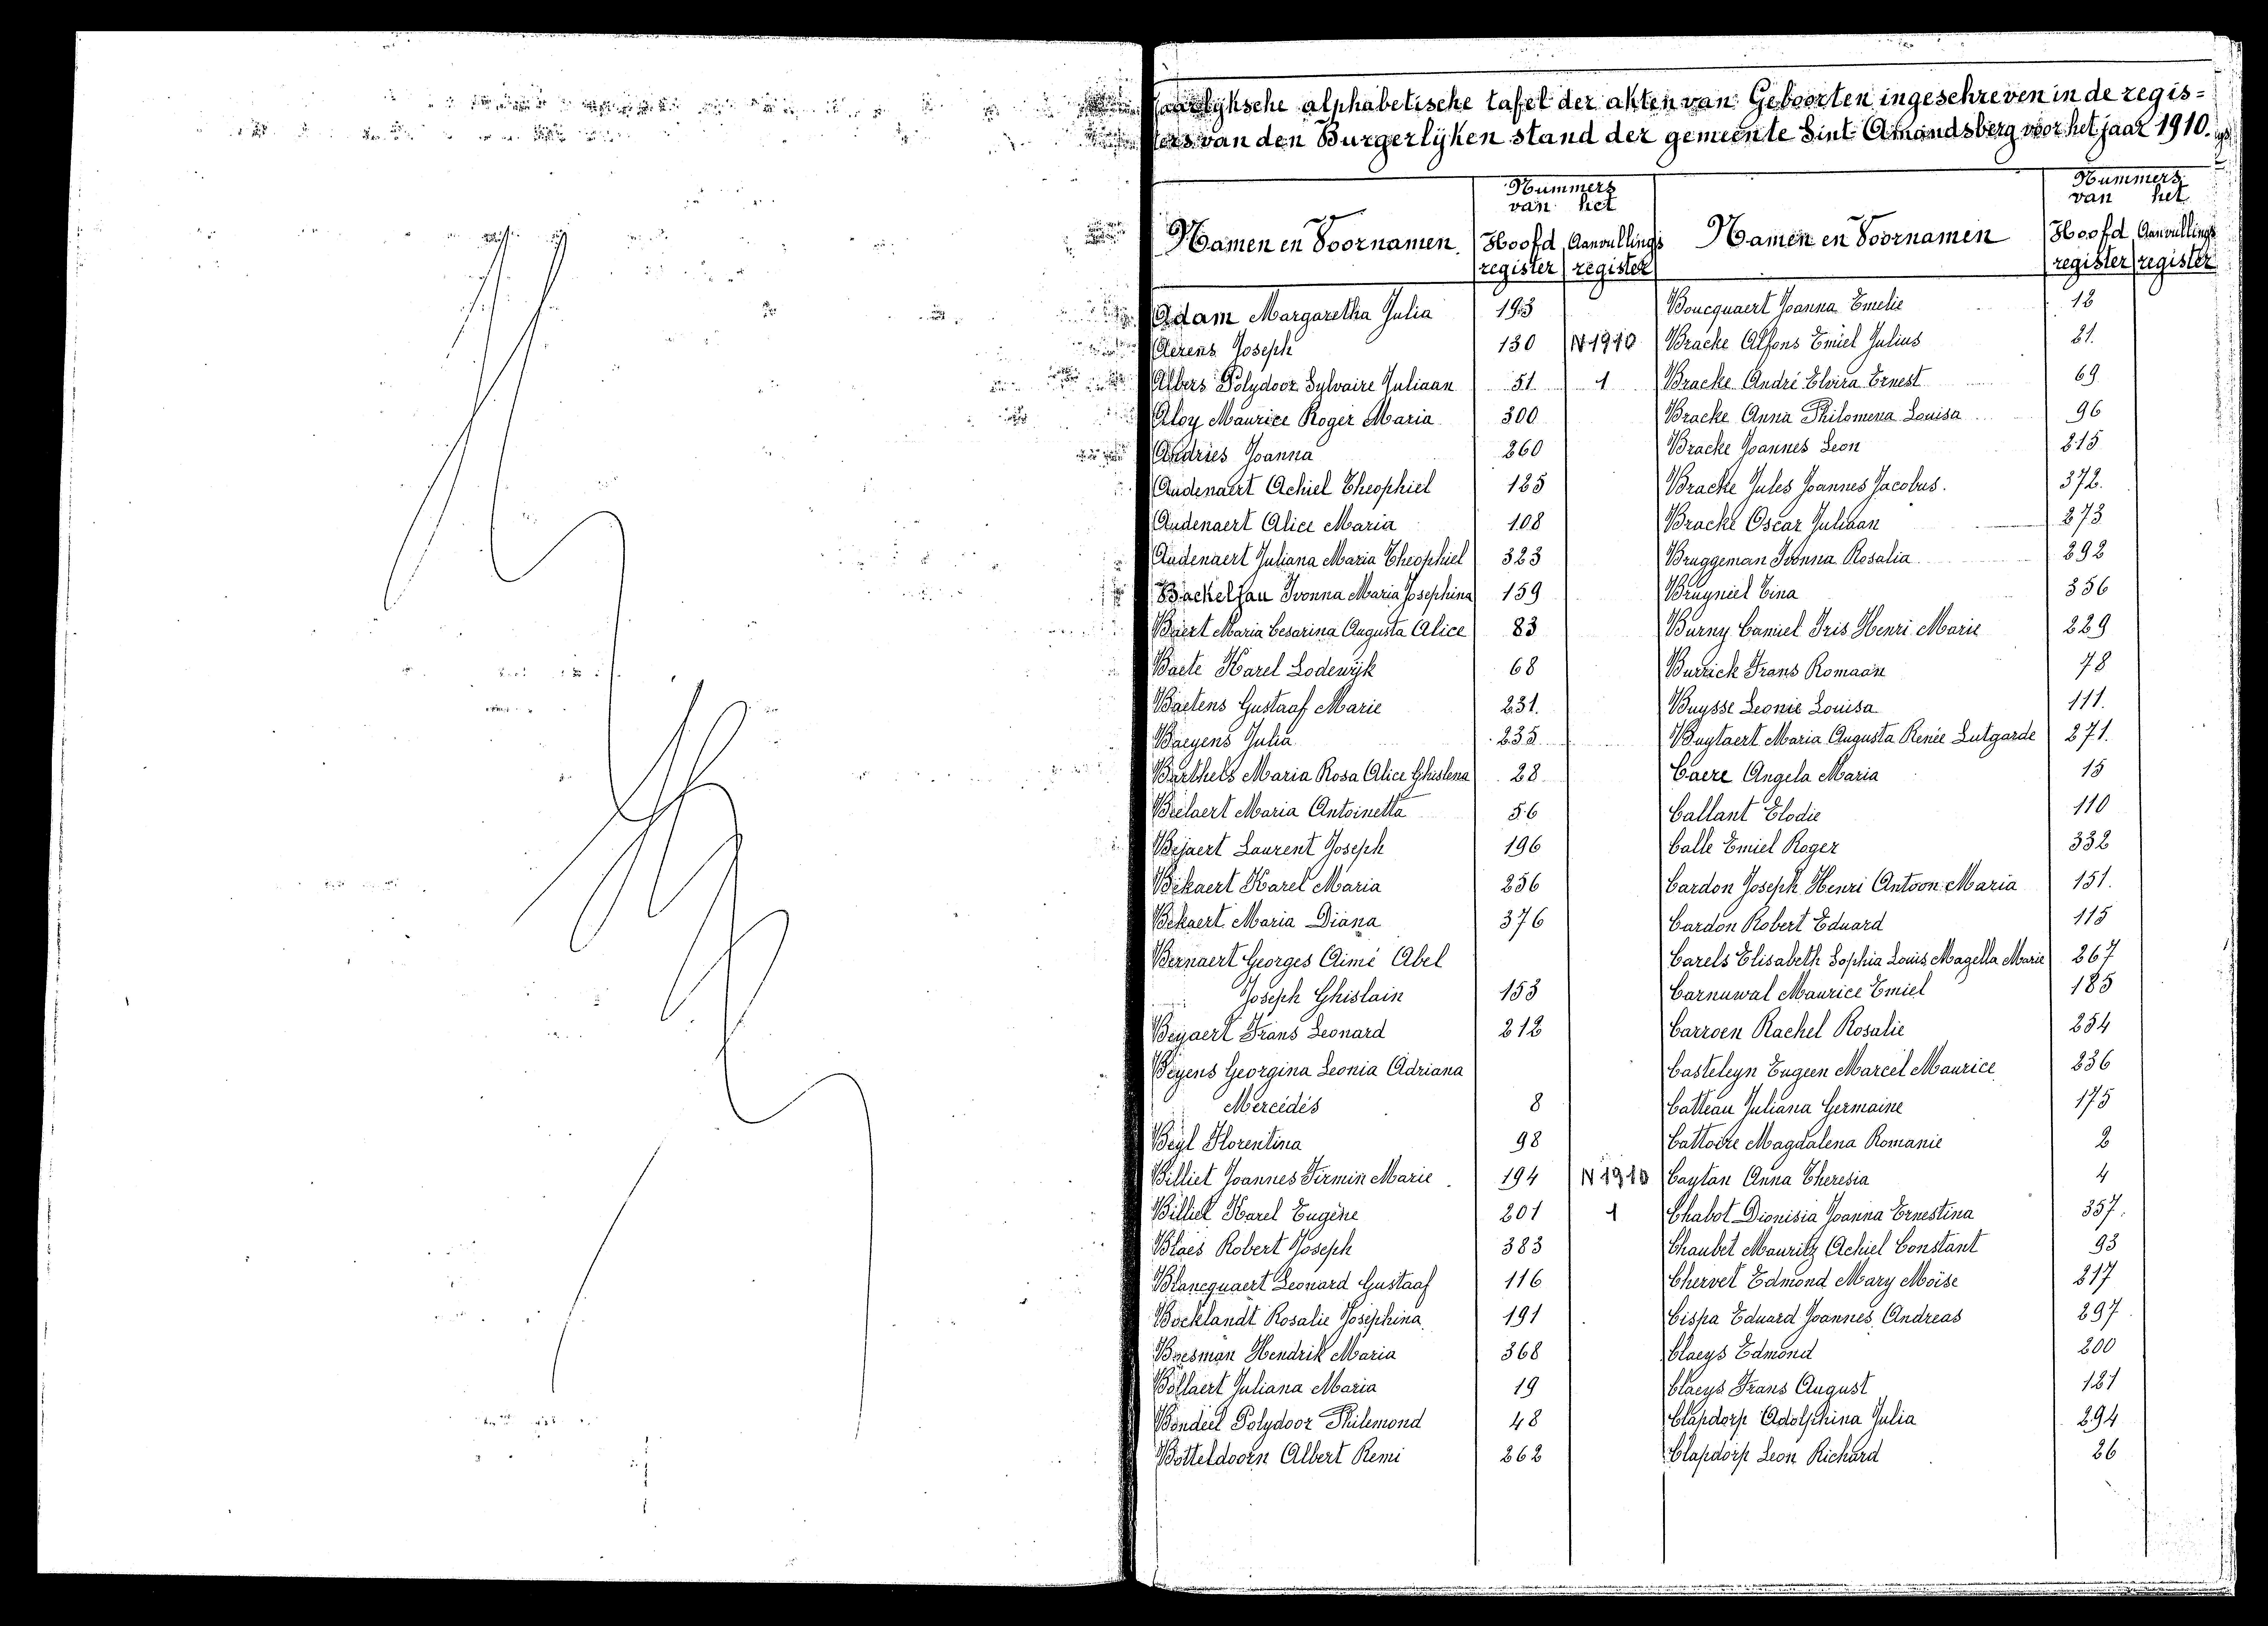 Jaarlyksche alphabetische tafel der akten van Geboorten ingeschreven in de regis=
ters van den Burgerlyken stand der gemeente Sint-Amandsberg voor het jaar 1910.
Namen en Voornamen
Nummers van het
Hoofd register
Aanvullings register
Namen en Voornamen
Nummers van het
Hoofd register
Aanvullings register
Adam Margaretha Julia 193
Aerens Joseph 130 N 1910
Albers Polydoor Sylvaire Juliaan 51 1
Aloy Maurice Roger Maria 300
Andries Joanna 260
Audenaert Achiel Theophiel 125
Audenaert Alice Maria 108
Audenaert Juliana Maria Theophiel 323
Backeljau Ivonna Maria Josephina 159
Baert Maria Cesarina Augusta Alice 83
Baete Karel Lodewijk 68
Baetens Gustaaf Marie 231.
Baeyens Julia 235
Barthels Maria Rosa Alice Ghislena 28
Beelaert Maria Antoinetta 56
Bejaert Laurent Joseph 196
Bekaert Karel Maria 256
Bekaert Maria Diana 376
Bernaert Georges Aimé Abel
Joseph Ghislain 153
Beyaert Frans Leonard 212
Beyens Georgina Leonia Adriana
Mercédès 8
Beyl Florentina 98
Billiet Joannes Firmin Marie 194 N 1910
Billiet Karel Eugène 201 1
Blaes Robert Joseph 383
Blancquaert Leonard Gustaaf 116
Bocklandt Rosalie Josephina 191
Boesman Hendrik Maria 368
Bollaert Juliana Maria 19
Bondeel Polydoor Philemond 48
Botteldoorn Albert Remi 262
Boucquaert Joanna Emelie 12
Bracke Alfons Emiel Julius 21.
Bracke André Elvira Ernest 69
Bracke Anna Philomena Louisa 96
Bracke Joannes Leon 215
Bracke Jules Joannes Jacobus. 372.
Bracke Oscar Juliaan 273
Bruggeman Ivonna Rosalia 292
Bruyniel Tina 356
Burny Camiel Iris Henri Marie 229
Burrick Frans Romaan 78
Buysse Leonie Louisa 111.
Buytaert Maria Augusta Renée Lutgarde 271.
Caere Angela Maria 15
Callant Elodie 110
Calle Emiel Roger 332
Cardon Joseph Henri Antoon Maria 151.
Cardon Robert Eduard 115
Carels Elisabeth Sophia Louis Magella Marie 267
Carnuwal Maurice Emiel 185
Carroen Rachel Rosalie 254
Casteleyn Eugeen Marcel Maurice 236
Catteau Juliana Germaine 175
Cattoire Magdalena Romanie 2
Caytan Anna Theresia 4
Chabot Dionisia Joanna Ernestina 357.
Chaubet Mauritz Achiel Constant 93
Chervet Edmond Mary Moïse 217
Cispa Eduard Joannes Andreas 297
Claeys Edmond 200
Claeys Frans August 121
Clapdorp Adolphina Julia 294
Clapdorp Leon Richard 26